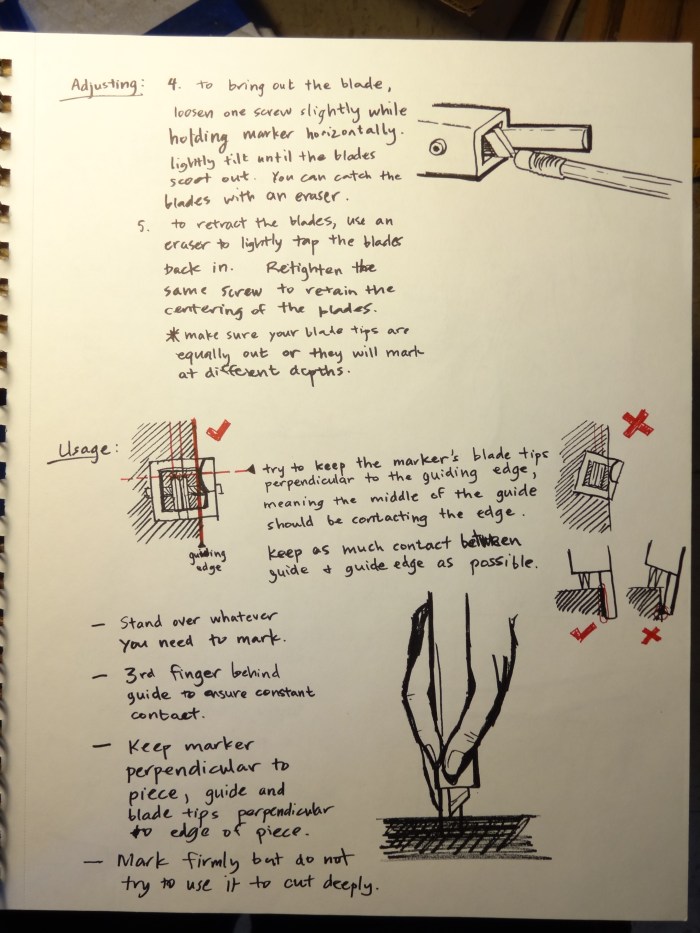 Adjusting: 4. to bring out the blade,
loosen one screw slightly while
holding marker horizontally.
lightly tilt until the blades
scoot out. You can catch the
blades with an eraser.
5. to retract the blades, use an
eraser to lightly tap the blades
back in. Retighten the
same screw to retain the
centering of the blades.
* make sure your blade tips are
equally out or they will mark
at different depths.
Usage:
guiding
edge
try to keep the marker's blade tips
perpendicular to the guiding edge,
meaning the middle of the guide
should be contacting the edge.
keep as much contact between
guide & guide edge as possible.
- Stand over whatever
you need to mark.
- 3rd finger behind
guide to ensure constant
contact.
- Keep marker
perpendicular to
piece, guide and
blade tips perpendicular
to edge of piece.
- Mark firmly but do not
try to use it to cut deeply.